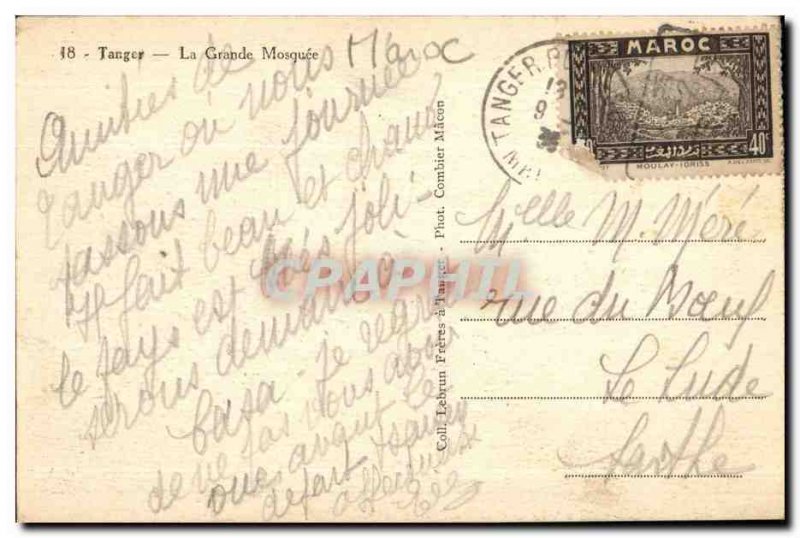 18 - Tanger — La Grande Mosquée
Maroc
Amitiés de
Tanger où nous
passons une journée
Il fait beau et chaud
le pays est très joli -
serons demain à
Casa - je regr
de ne pas vous avoir
vue avant le
départ
affectueuses
Coll. Lebrun Frères à Tanger - Phot. Combier Mâcon
TANGER
MAROC
40c
MOULAY-IDRISS
Melle M. Méré
rue du Mœuf
Le Lude
Sarthe
CPAPHIL